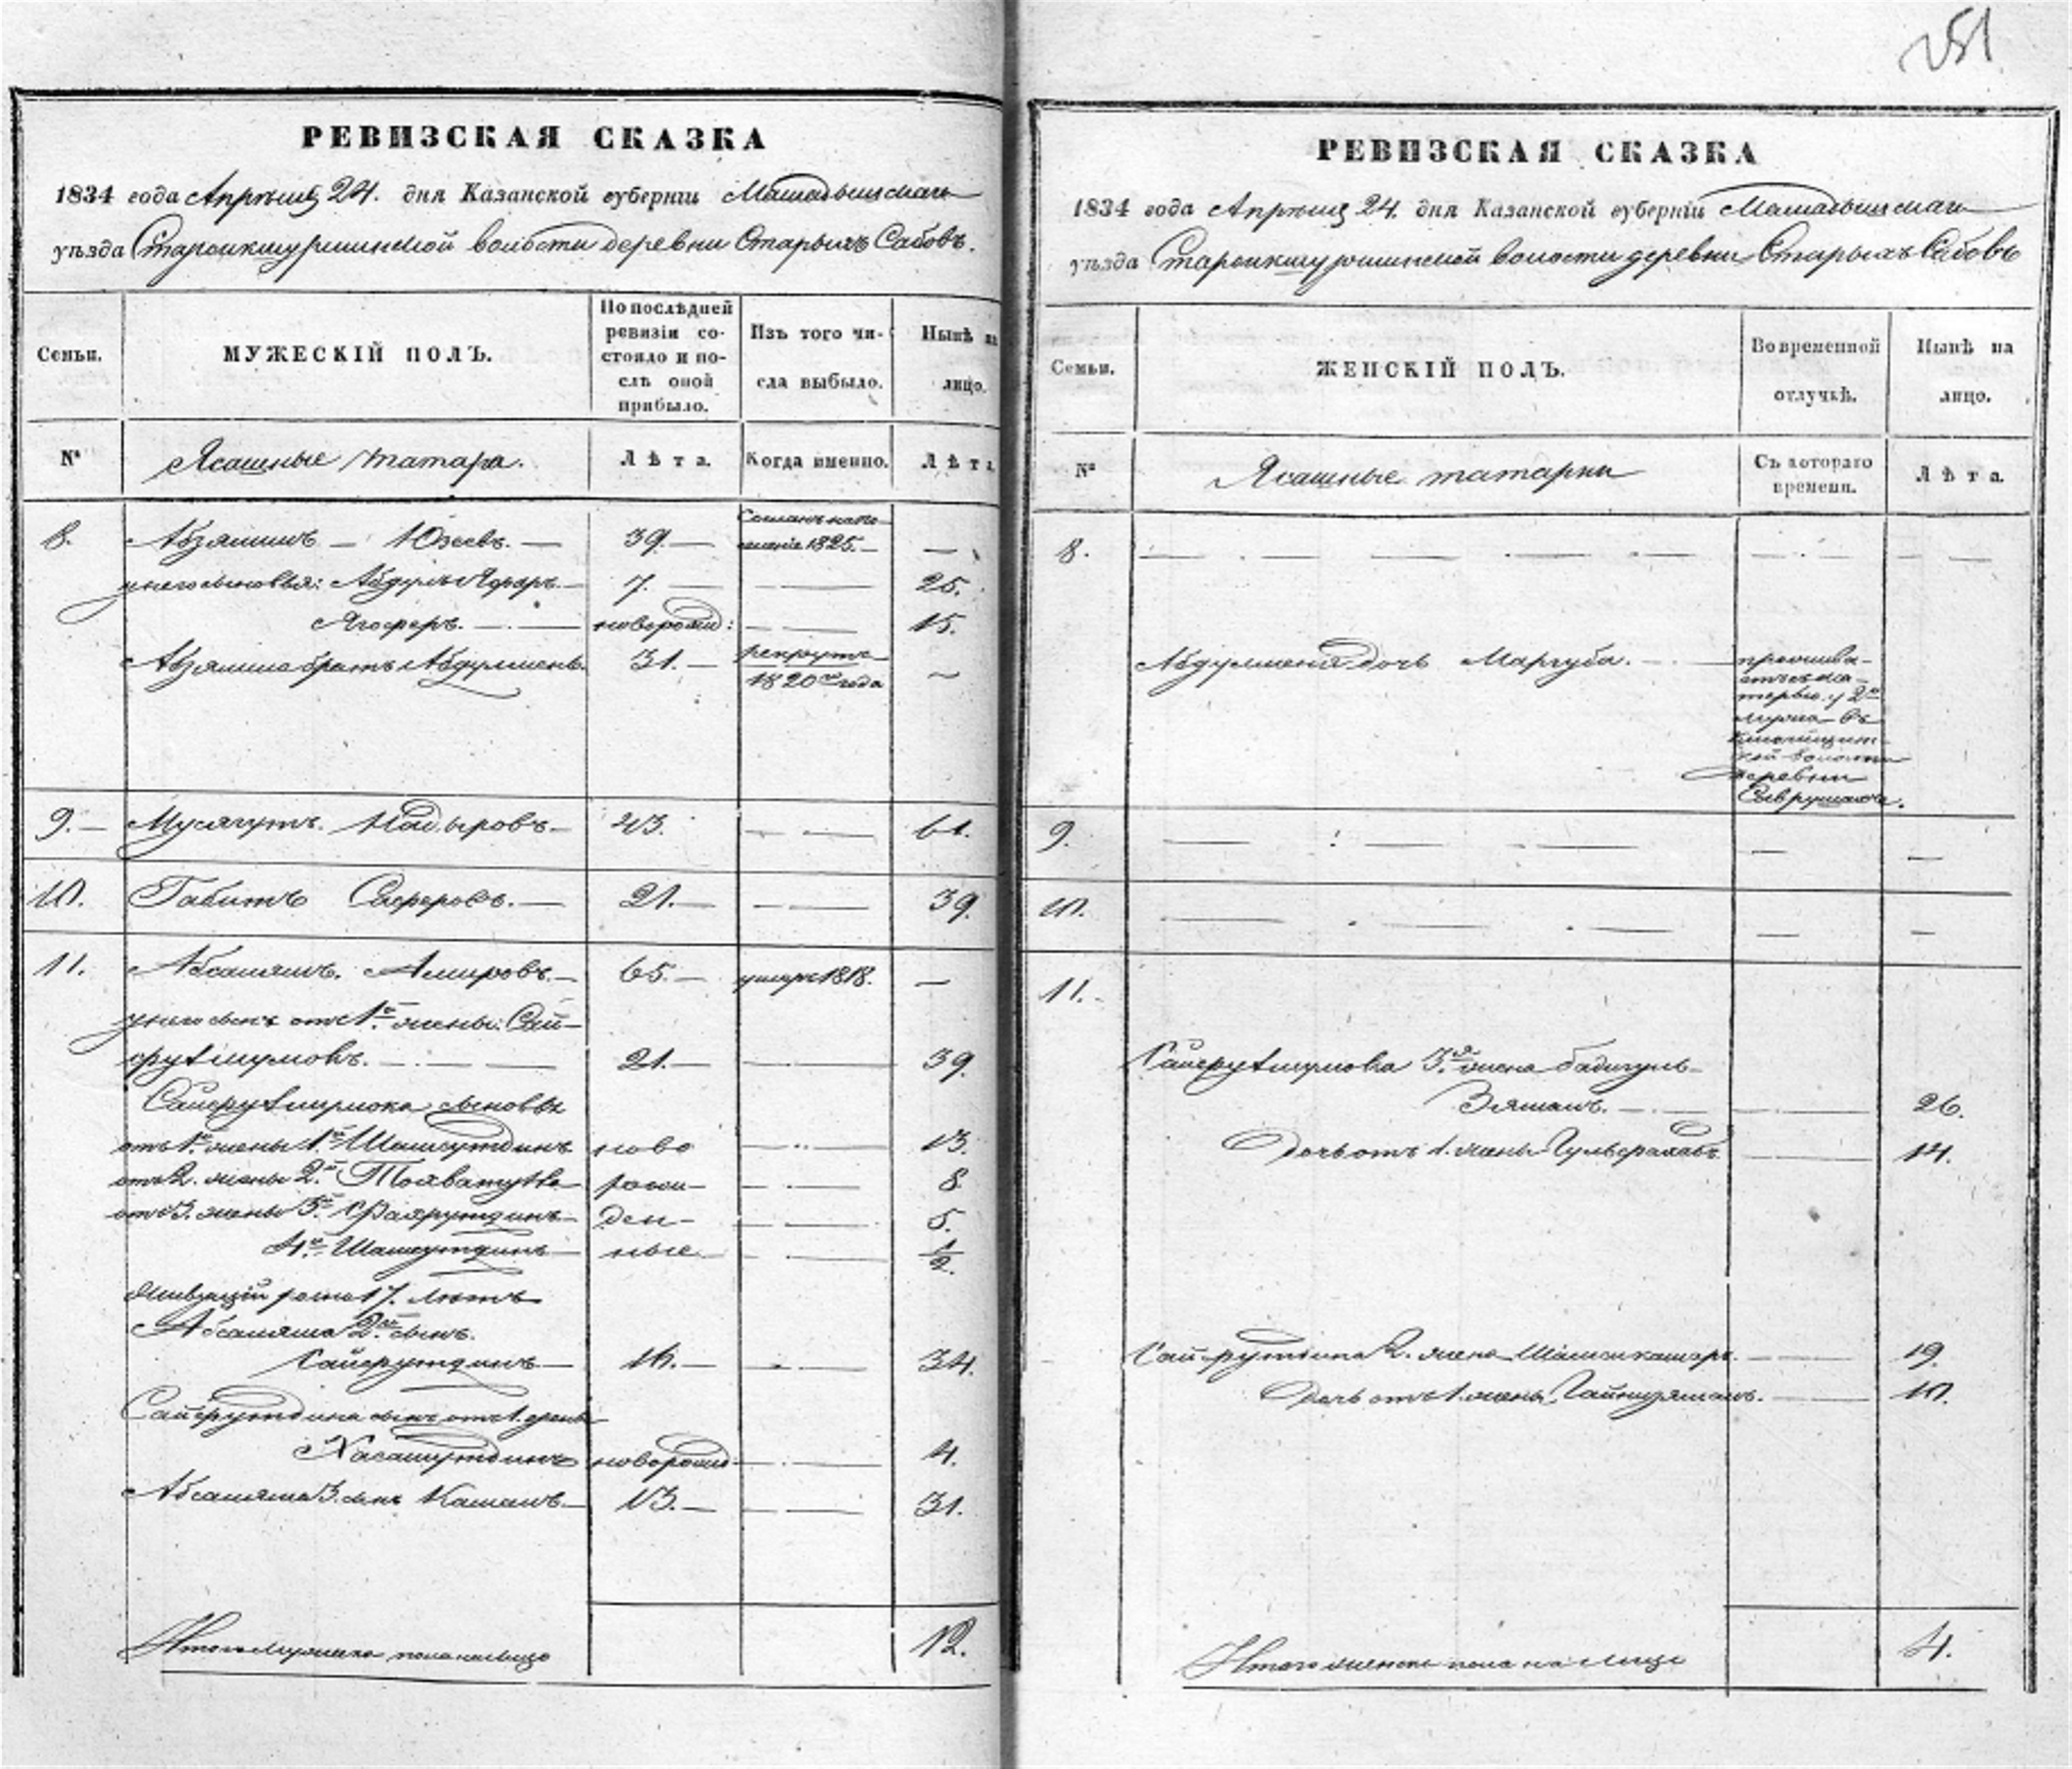 251
РЕВИЗСКАЯ СКАЗКА
1834 года Апрѣля 24. дня Казанской губерніи Мамадышскаго
уѣзда Староикшурминской волости деревни Старыхъ Сабовъ.
Семьи.
МУЖЕСКІЙ ПОЛЪ.
По послѣдней
ревизіи со-
стояло и по-
слѣ оной
прибыло.
Изъ того чи-
сла выбыло.
Нынѣ на
лицо.
№
Ясашные татара.
Лѣта.
Когда именно.
Лѣта
8. Абзялилъ — Юзеевъ. — 39. — —
1825.
у него сыновья: Абдулъ Яфаръ 7. — 25.
Ягоферъ. — новорожд: — 15.
Абзялила братъ Абдулменъ. 31. — рекрутъ —
1820го года
9. — Мусягутъ Надыровъ. — 43. — — 61.
10. Габитъ Саферовъ. — 21. — — — 39.
11. Абсалямъ. Амировъ. — 65. — умеръ 1818. —
у него сынъ отъ 1й жены: Сай-
фулмулюковъ. — 21. — — 39.
Сайфулмулюка сыновья
отъ 1й жены 1й Шамсутдинъ ново — 13.
отъ 2. жены 2й рож — 8
отъ 3. жены 3й Фахрутдинъ — ден — 5.
4й — ные — 1/2.
17. лѣтъ
Абсаляма 2й сынъ.
Сайфутдинъ — 16. — — 34.
Сайфутдина сынъ отъ 1. жены
Хасамутдинъ новорожд — 4.
Абсаляма 3. сынъ Камалъ — 13. — — 31.
Итого мужеска пола налицо 12.
РЕВИЗСКАЯ СКАЗКА
1834 года Апрѣля 24. дня Казанской губерніи Мамадышскаго
уѣзда Староикшурминской волости деревни Старыхъ Сабовъ
Семьи.
ЖЕНСКІЙ ПОЛЪ.
Во временной
отлучкѣ.
Нынѣ на
лицо.
№
Ясашные татарки
Съ котораго
времени.
Лѣта.
8. — — — — — —
Абдулменя дочь Маргуба. —
терью у 2го
мужа въ
волости
деревни
9. — — — — —
10. — — — — —
11.
Сайфулмулюка 3я жена Бадигуль-
Зямалъ. — — 26.
Дочь отъ 1. жены — 14.
Сайфутдина 2. жена — 19.
Дочь отъ 1. жены — 10.
Итого женска пола на лицо 4.